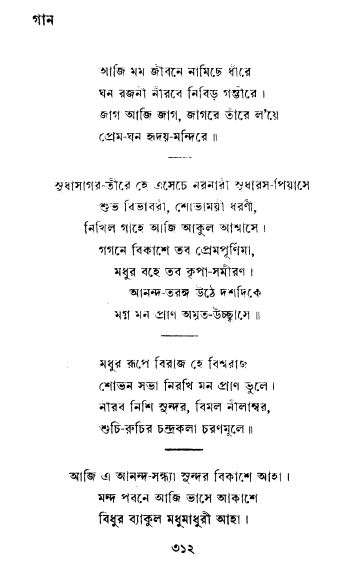 গান
আজি মম জীবনে নামিছে ধীরে
ঘন রজনী নীরবে নিবিড় গম্ভীরে।
জাগ আজি জাগ, জাগরে তাঁরে ল'য়ে
প্রেম-ঘন হৃদয়-মন্দিরে॥
সুধাসাগর-তীরে হে এসেচে নরনারী সুধারস-পিয়াসে
শুভ বিভাবরী, শোভাময়ী ধরণী,
নিখিল গাহে আজি আকুল আশ্বাসে।
গগনে বিকাশে তব প্রেমপূর্ণিমা,
মধুর বহে তব কৃপা-সমীরণ।
আনন্দ-তরঙ্গ উঠে দশদিকে
মগ্ন মন প্রাণ অমৃত-উচ্ছ্বাসে॥
মধুর রূপে বিরাজ হে বিশ্বরাজ
শোভন সভা নিরখি মন প্রাণ ভুলে।
নীরব নিশি সুন্দর, বিমল নীলাম্বর,
শুচি-রুচির চন্দ্রকলা চরণমূলে॥
আজি এ আনন্দ-সন্ধ্যা সুন্দর বিকাশে আহা।
মন্দ পবনে আজি ভাসে আকাশে
বিধুর ব্যাকুল মধুমাধুরী আহা।
৩১২